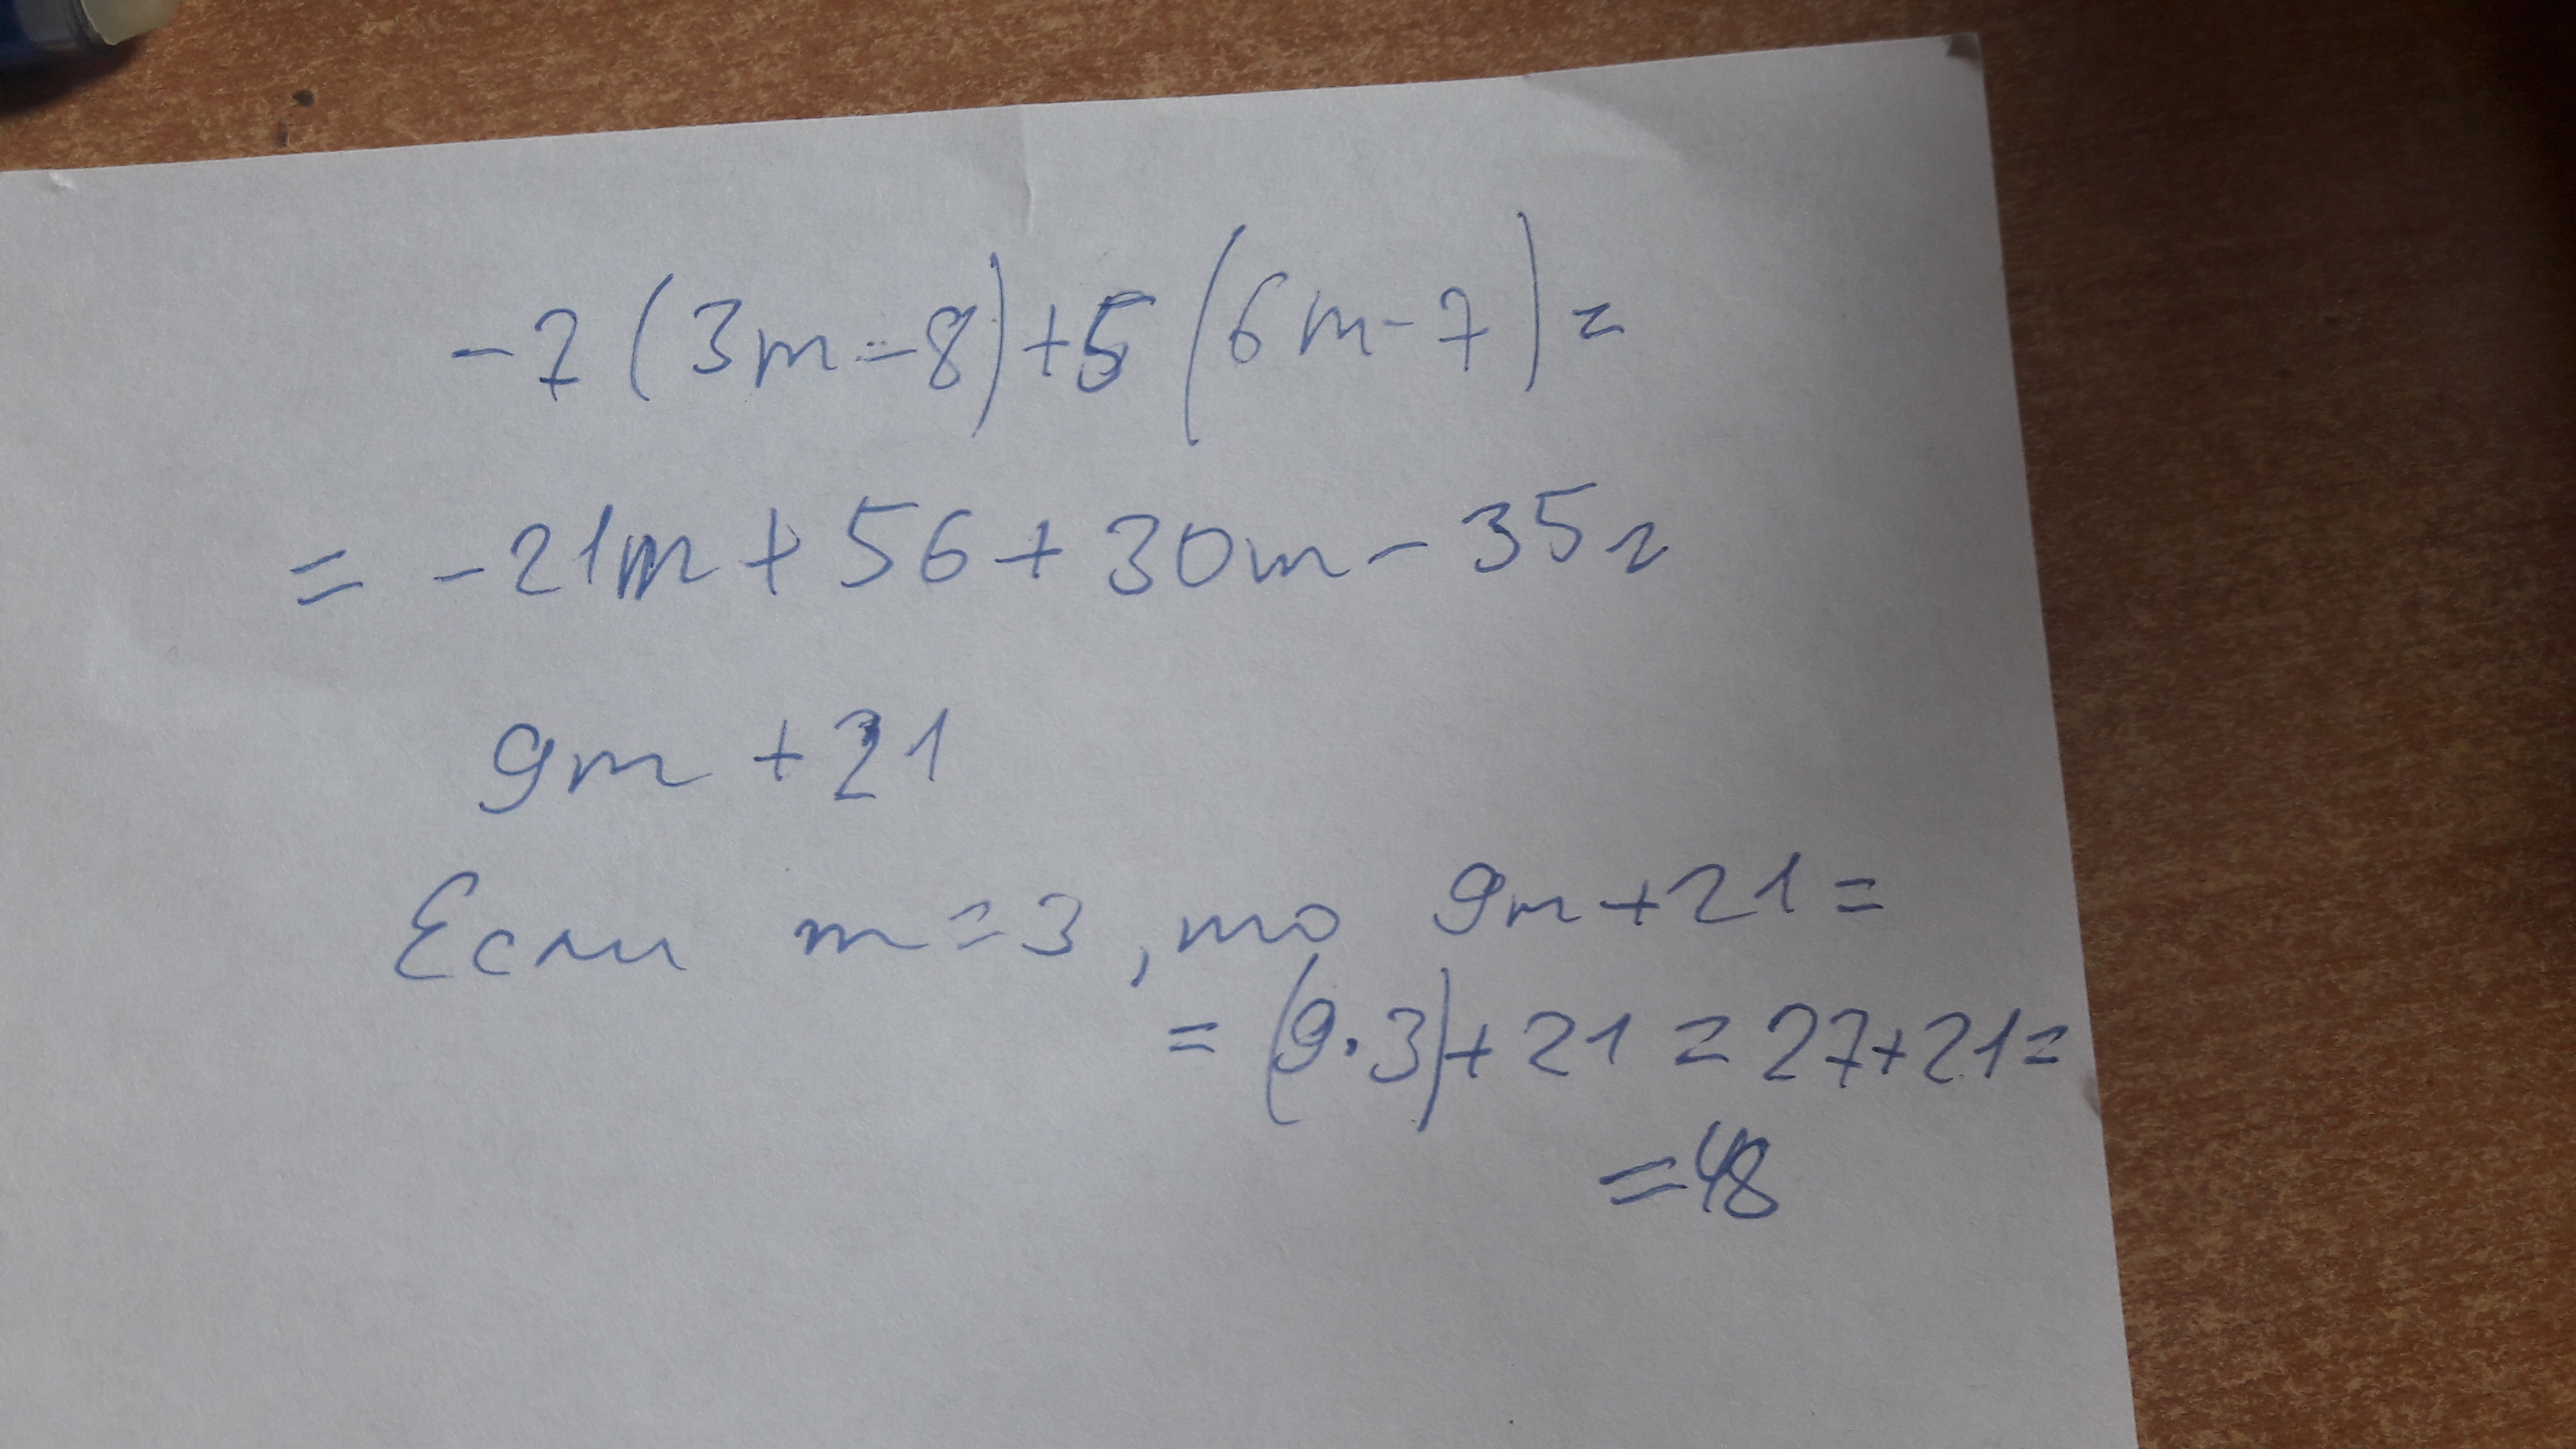 -7(3m-8)+5(6m-7)=
= -21m+56+30m-35=
9m+21
Если m=3, то 9m+21=
=(9·3)+21=27+21=
=48